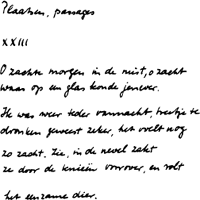 Plaatsen, passages
XXIII
O zachte morgen in de mist, o zacht
waas op een glas koude jenever.
Ik was weer teder vannacht, beetje te
dronken geweest zeker, het voelt nog
zo zacht. Zie, in de nevel zakt
ze door de knieën voorover, en rolt
het eenzame dier.